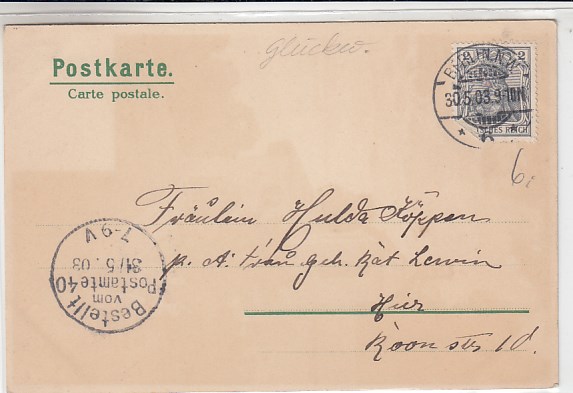 Glückw.
Postkarte.
Carte postale.
BERLIN N.W.
30.5.03.9-10N.
2
DEUTSCHES REICH
6.
Fräulein Hulda Köppen
p. A. Frau geh. Rat Lewin
Hier
Roonstr 10.
Bestellt
vom
Postamte 40
31/5.03
7-9 V